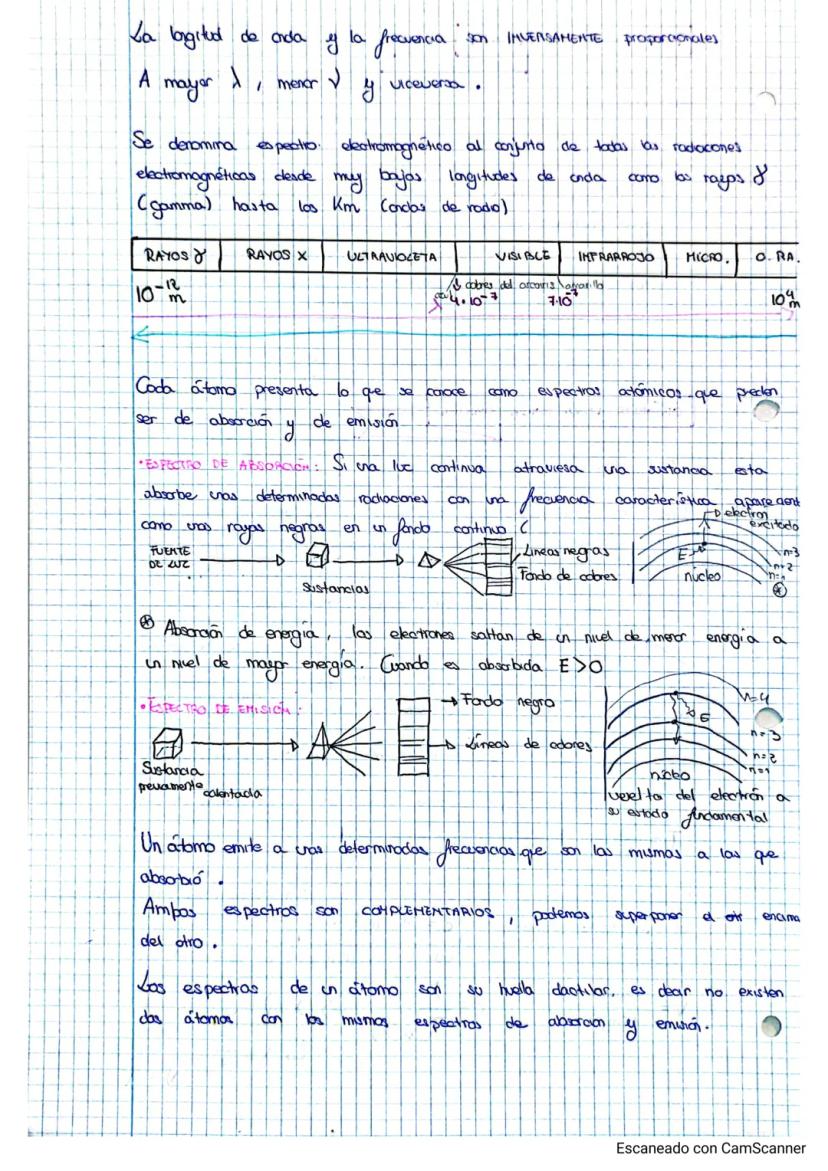 La longitud de onda y la frecuencia son INVERSAMENTE proporcionales
A mayor λ, menor ν y viceversa.
Se denomina espectro electromagnético al conjunto de todas las radiaciones
electromagnéticas desde muy bajas longitudes de onda como los rayos γ
(gamma) hasta los Km (ondas de radio)
RAYOS γ RAYOS X ULTRAVIOLETA VISIBLE INFRARROJO MICRO. O. RA.
colores del arcoiris
10⁻¹² m 4·10⁻⁷ 7·10⁻⁷ 10⁴ m
Cada átomo presenta lo que se conoce como espectros atómicos que pueden
ser de absorción y de emisión
• ESPECTRO DE ABSORCIÓN: Si una luz continua atraviesa una sustancia esta
absorbe unas determinadas radiaciones con una frecuencia característica aparecent
como unas rayas negras en un fondo continuo (
electron
excitado
FUENTE
DE LUZ
Sustancias
Líneas negras
Fondo de colores
E
núcleo
n=3
n=2
n=1
⊛
⊛ Absorción de energía, los electrones saltan de un nivel de menor energía a
un nivel de mayor energía. Cuando es absorbida E>0
• ESPECTRO DE EMISIÓN:
Sustancia
previamente calentada
Fondo negro
Líneas de colores
n=4
E
n=3
n=2
n=1
núcleo
vuelta del electrón a
su estado fundamental
Un átomo emite a unas determinadas frecuencias que son las mismas a las que
absorbió.
Ambos espectros son COMPLEMENTARIOS, podemos superponer el encima
del otro.
Los espectros de un átomo son su huella dactilar, es decir no existen
dos átomos con los mismos espectros de absorcion y emisión.
Escaneado con CamScanner